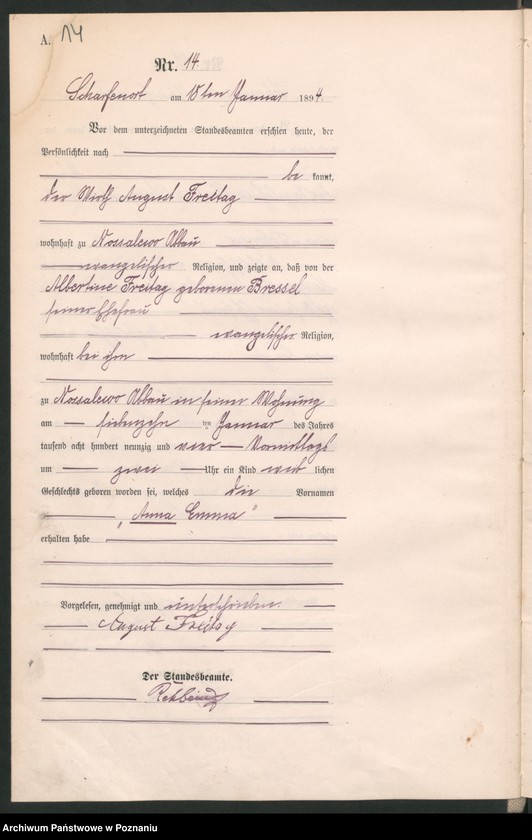 A. 14
Nr. 14.
Scharfenort am 18ten Januar 1894.
Vor dem unterzeichneten Standesbeamten erschien heute, der
Persönlichkeit nach
be kannt,
der Wirth August Freitag
wohnhaft zu Nossalewo Abbau
evangelischer Religion, und zeigte an, daß von der
Albertine Freitag geborenen Bressel
seiner Ehefrau
evangelischer Religion,
wohnhaft bei ihm
zu Nossalewo Abbau in seiner Wohnung
am siebenzehn ten Januar des Jahres
tausend acht hundert neunzig und vier Vormittags
um zwei Uhr ein Kind weib lichen
Geschlechts geboren worden sei, welches die Vornamen
„Anna Emma"
erhalten habe
Vorgelesen, genehmigt und unterschrieben.
August Freitag
Der Standesbeamte.
Archiwum Państwowe w Poznaniu